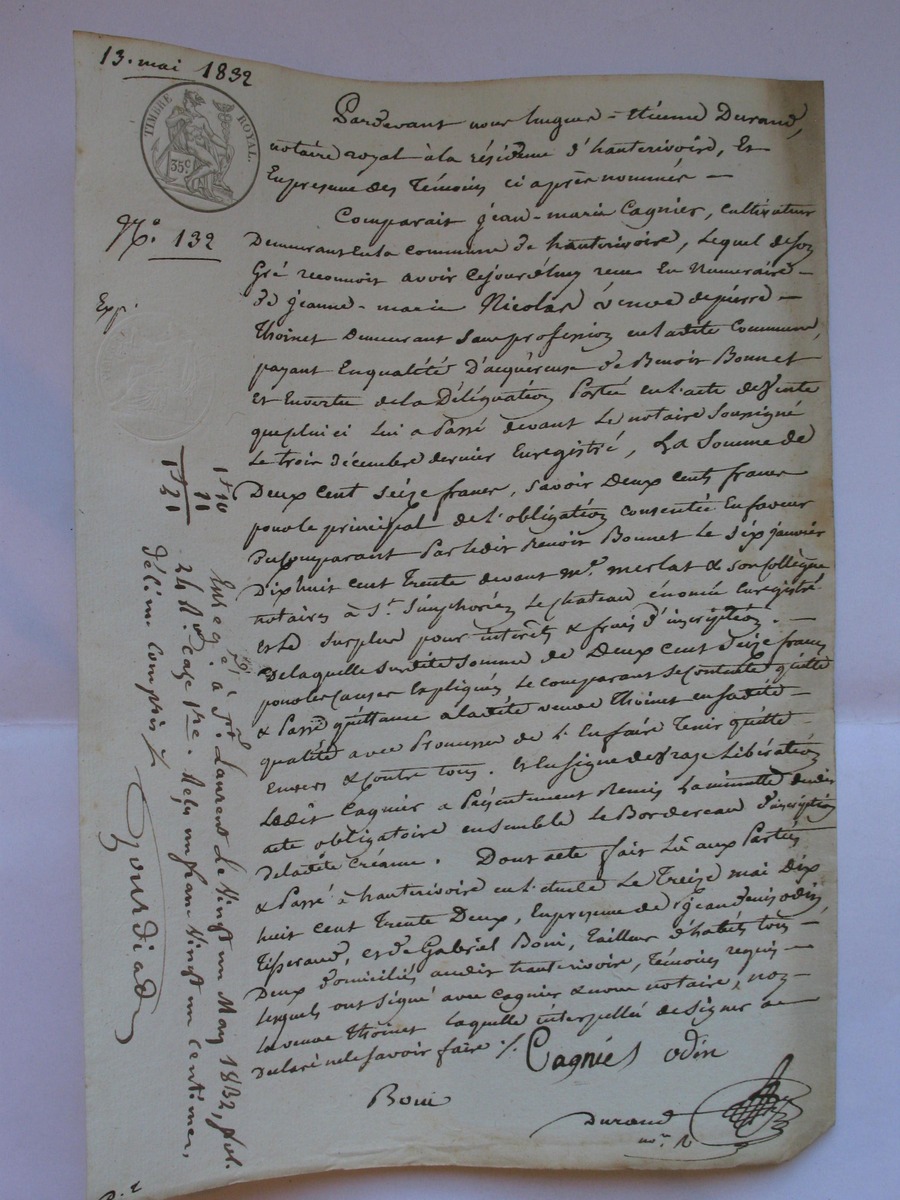 13. mai 1832
TIMBRE ROYAL.
35 c.
N.° 132
Exp.
Pardevant nous hugues-étienne Durand,
notaire royal à la résidence d'hauterivoire, Et
En presence des Témoins ci après nommés —
Comparait jean-marie Cagnier, Cultivateur
Demeurant en la commune de hauterivoire, lequel de son
Gré reconnoit avoir cejourd'huy reçu En numeraire —
de jeanne-marie Nicolas veuve de pierre —
Thoinet Demeurant sans profession en ladite Commune
payant En qualité D'acquéreuse de Benoit Bonnet
et En vertu de la Délégation Portée en l'acte de vente
que celui ci lui a Passé devant Le notaire soussigné
Le trois décembre dernier Enregistré, La Somme de
Deux cent seize francs, savoir Deux cents francs
pour le principal de l'obligation consentie En faveur
du Comparant Par ledit Benoit Bonnet Le six janvier
Dix huit cent Trente devant m.e merlat & son collègue
notaires à S.t Simphorien Le chateau énoncée Enregistré
et le surplus pour intérêts & frais d'inscription. —
De laquelle susdite somme de Deux cent seize francs
pour les causes Expliquées Le comparant se contente quitte
& Passe quittance à ladite veuve Thoinet en sadite —
qualité avec Promesse de L'En faire Tenir quitte
Envers & contre tous. Et En signe de vraye Libération
Ledit Cagnier a Présentement Remis La minutte dudit
acte obligatoire ensemble Le Bordereau d'inscription
de ladite Créance. Dont acte fait Lû aux Parties
& Passé à hauterivoire en l'étude Le Treize mai Dix
huit cent Trente Deux, En presence de jean denis odin,
Tisserand, et de Gabriel Boni, Tailleur d'habits tous —
Deux domiciliés audit hauterivoire, Témoins requis —
lesquels ont signé avec Cagnier & nous notaire, non
la veuve Thoinet laquelle interpellée de signer a
declaré ne le savoir faire ./.
Cagnier odin
Boni
Durand
no.re R
1 f 10
11
1 f 21
Enreg.é à S.t Laurent Le Vingt un May 1832, fol.
24 R.° case 1re. Reçu un franc Vingt un centimes,
délime compris
Gourdiat